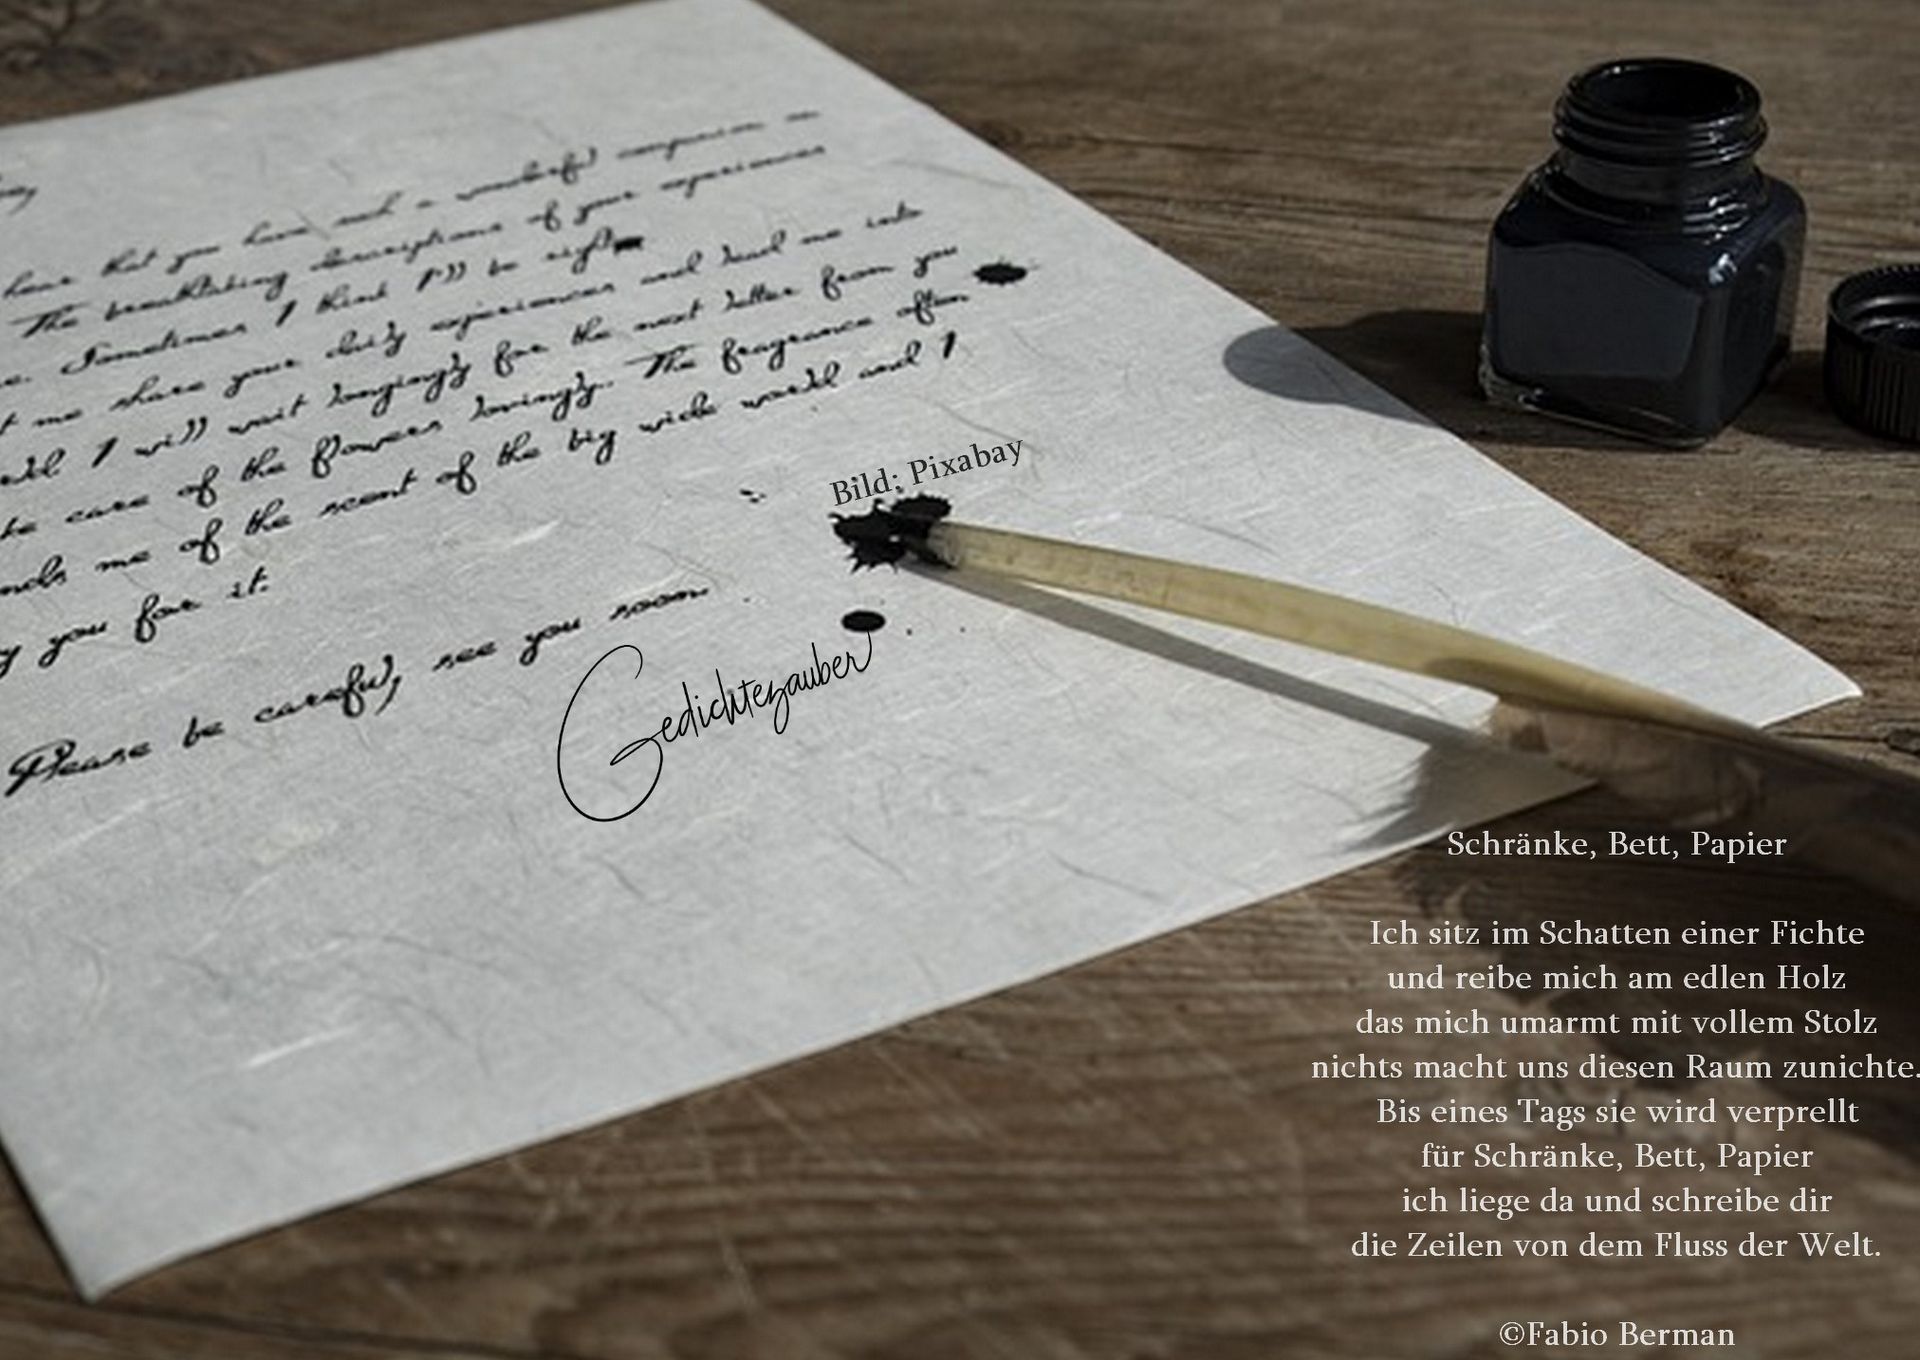 hear that you have such a wonderful companion on
The breathtaking descriptions of your experiences
e. Sometimes I think I'll be right
t me share your daily experiences and lead me into
I will wait longingly for the next letter from you
care of the flowers lovingly. The fragrance often
nds me of the scent of the big wide world and I
y you for it.
Please be careful, see you soon
Bild; Pixabay
Gedichtezauber
Schränke, Bett, Papier
Ich sitz im Schatten einer Fichte
und reibe mich am edlen Holz
das mich umarmt mit vollem Stolz
nichts macht uns diesen Raum zunichte.
Bis eines Tags sie wird verprellt
für Schränke, Bett, Papier
ich liege da und schreibe dir
die Zeilen von dem Fluss der Welt.
©Fabio Berman